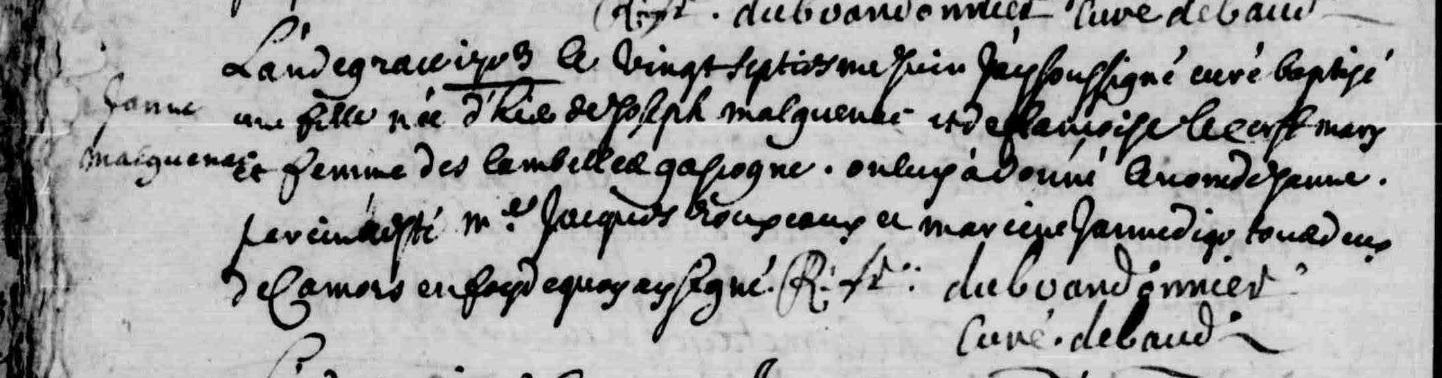 R. fr. duboüandonnier Curé debaud
L'an de grace 1703 le vingt septiesme Juin Jay soussigné curé baptisé
Janne
une fille née d'hier de Joseph malguenac et de francoise le cerf mary
malguenac
et femme des lambelled gascogne. on luy à donné le nom de Janne.
parein à esté Jacques rouxeaux et mareine Janne digo tous deux
de Camors en foy de quoy ay signé. R. fr. duboüandonnier
Curé. debaud